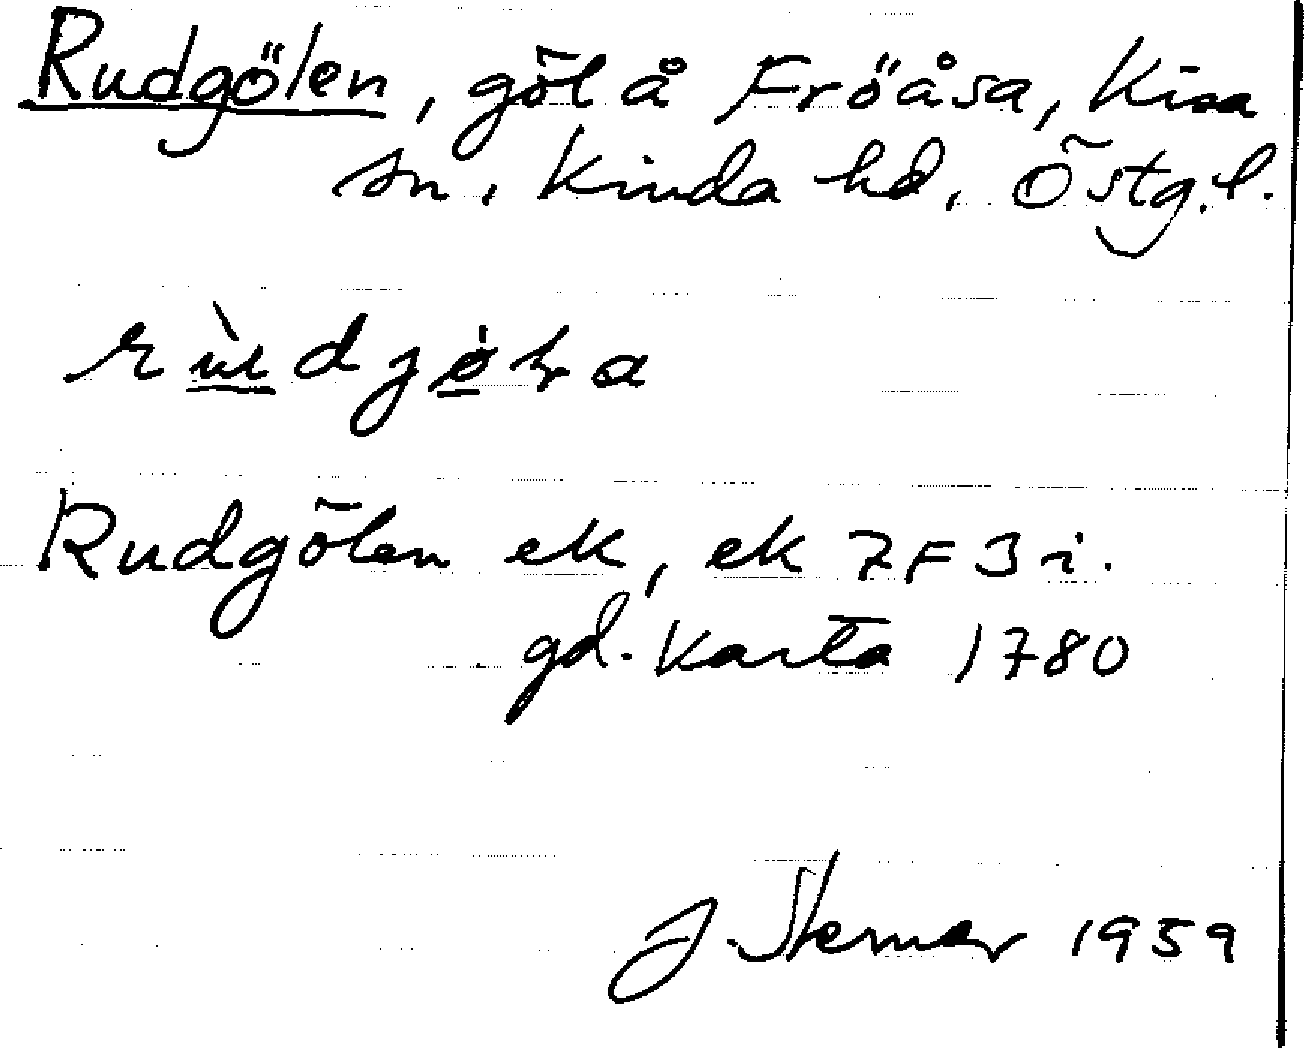 Rudgölen, göl å Fröåsa, Kisa
sn, Kinda hd, Östg.l.
Rudgölen ek, ek 7F3i.
gd. karta 1780
J. Sterner 1959